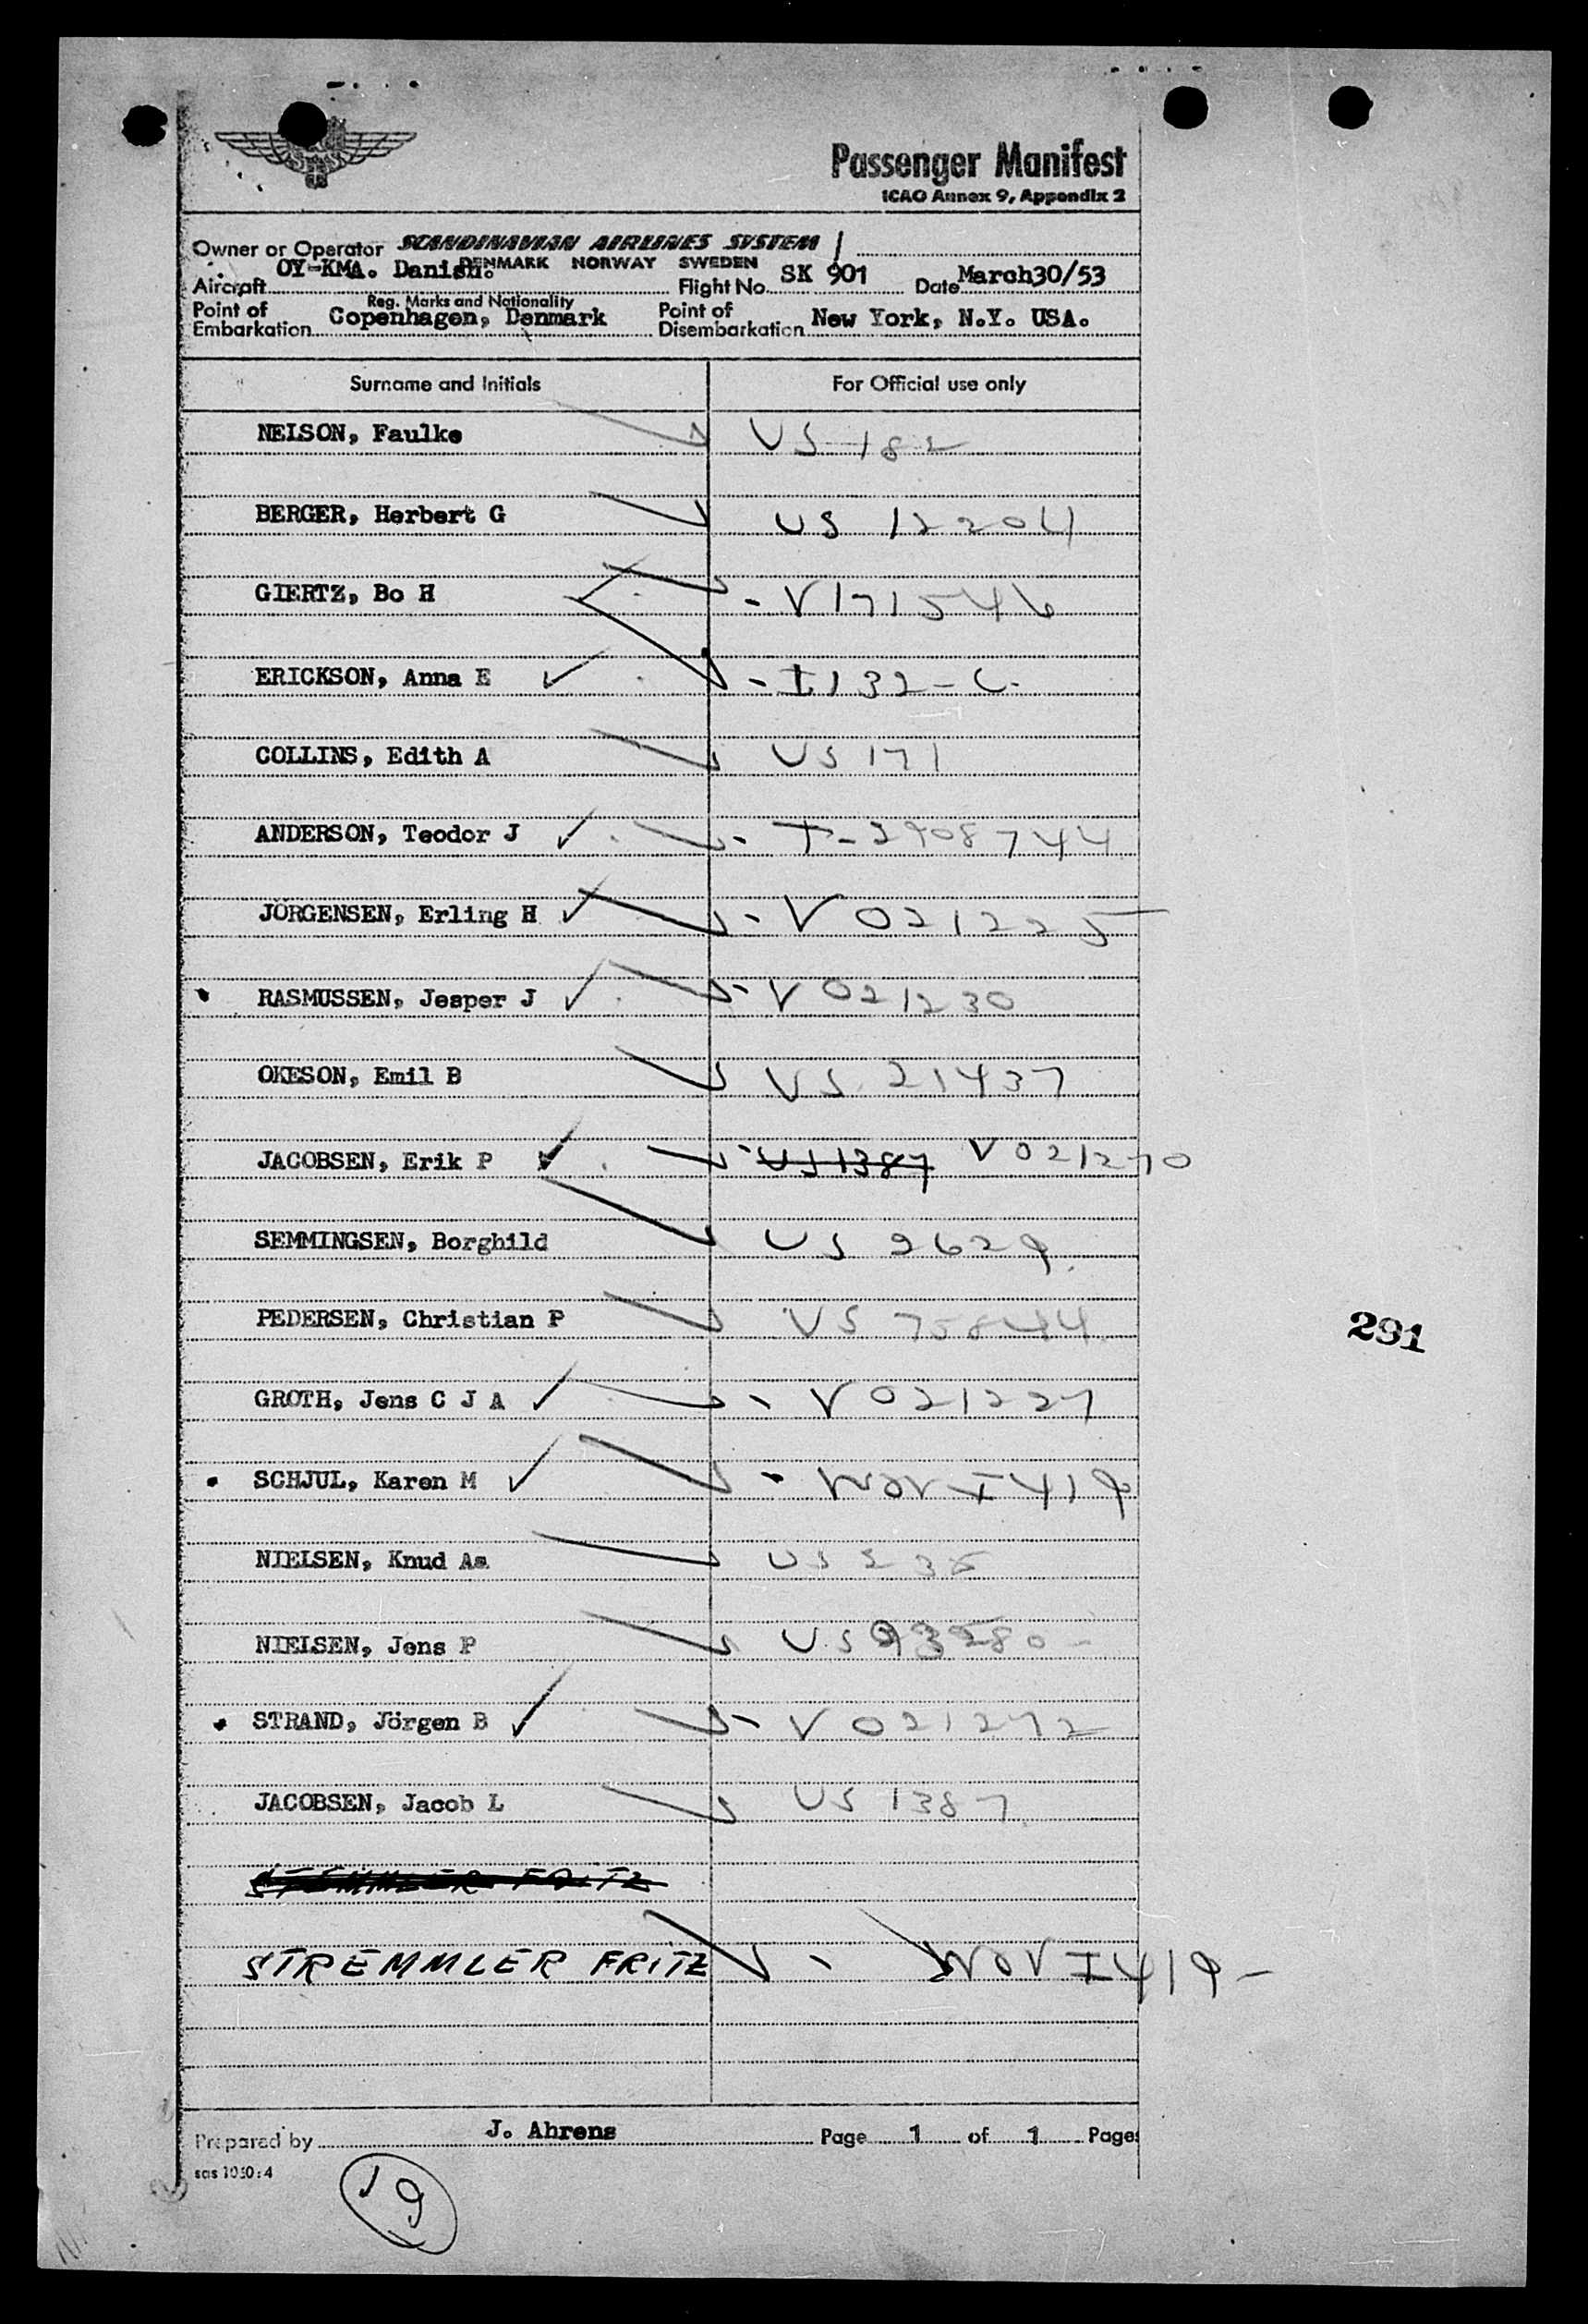 Passenger Manifest
ICAO Annex 9, Appendix 2
Owner or Operator SCANDINAVIAN AIRLINES SYSTEM
DENMARK NORWAY SWEDEN
Aircraft OY-KMA. Danish. Flight No. SK 901 Date March30/53
Reg. Marks and Nationality
Point of Embarkation Copenhagen, Denmark Point of Disembarkation New York, N.Y. USA.
Surname and Initials For Official use only
NELSON, Faulke US 182
BERGER, Herbert G US 12204
GIERTZ, Bo H - V171546
ERICKSON, Anna E - I132-C.
COLLINS, Edith A US 171
ANDERSON, Teodor J - T-2908744
JÖRGENSEN, Erling H - V 021225
RASMUSSEN, Jesper J - V 021230
OKESON, Emil B US 21437
JACOBSEN, Erik P - US 1387 V 021270
SEMMINGSEN, Borghild US 9629
PEDERSEN, Christian P US 75844
GROTH, Jens C J A - V 021227
SCHJUL, Karen M - NOV I419
NIELSEN, Knud Aa
NIELSEN, Jens P
STRAND, Jörgen B - V 021272
JACOBSEN, Jacob L US 1387
STEMMLER FRITZ
STREMMLER FRITZ - NOV I419-
291
Prepared by J. Ahrens Page 1 of 1 Pages
sas 1050:4
19